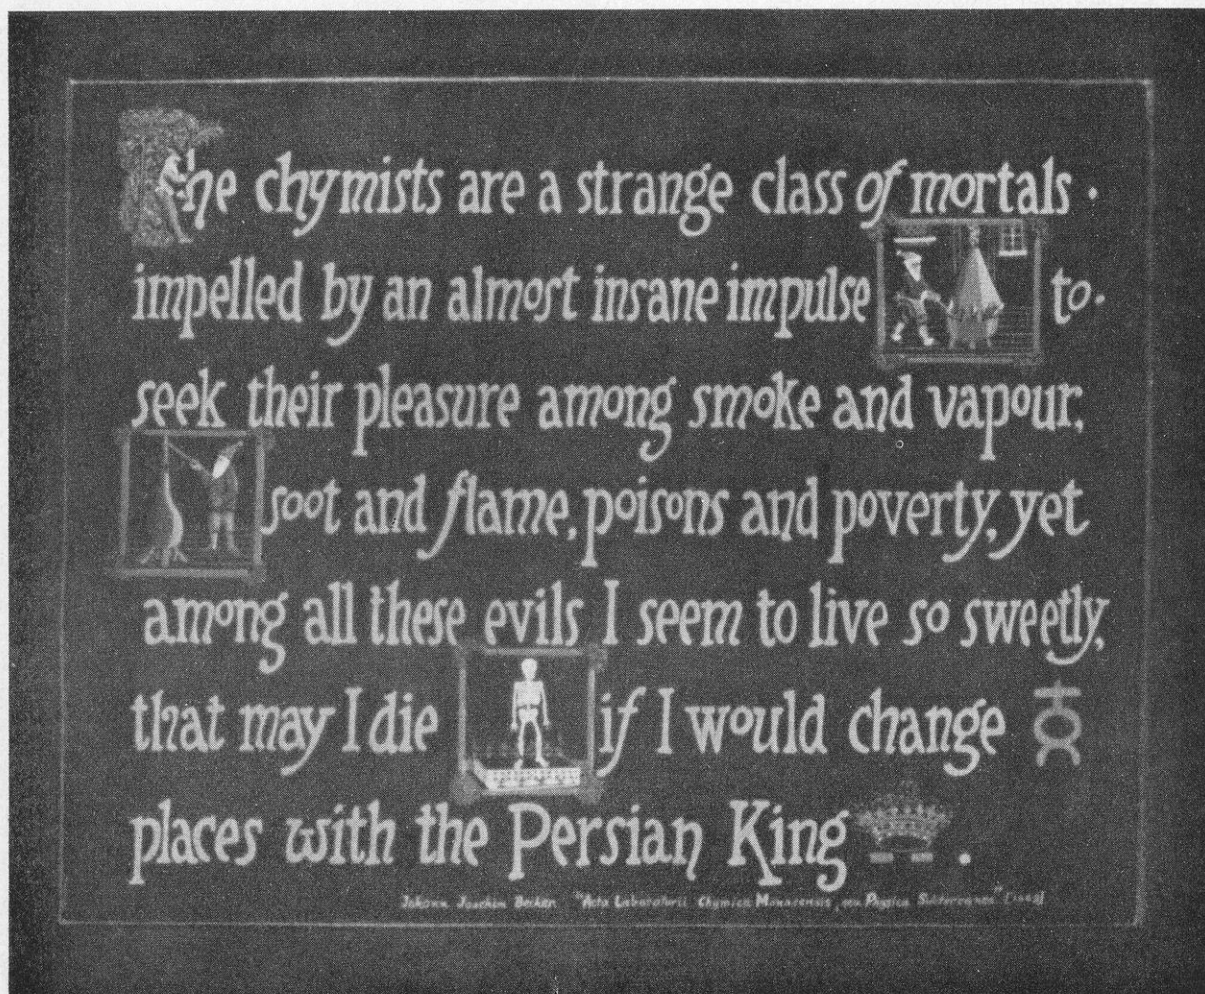 The chymists are a strange class of mortals ·
impelled by an almost insane impulse to·
seek their pleasure among smoke and vapour,
soot and flame, poisons and poverty, yet
among all these evils I seem to live so sweetly,
that may I die if I would change
places with the Persian King .
Johann Joachim Becher "Acta Laboratorii Chymica Monacensis, seu Physica Subterranea"